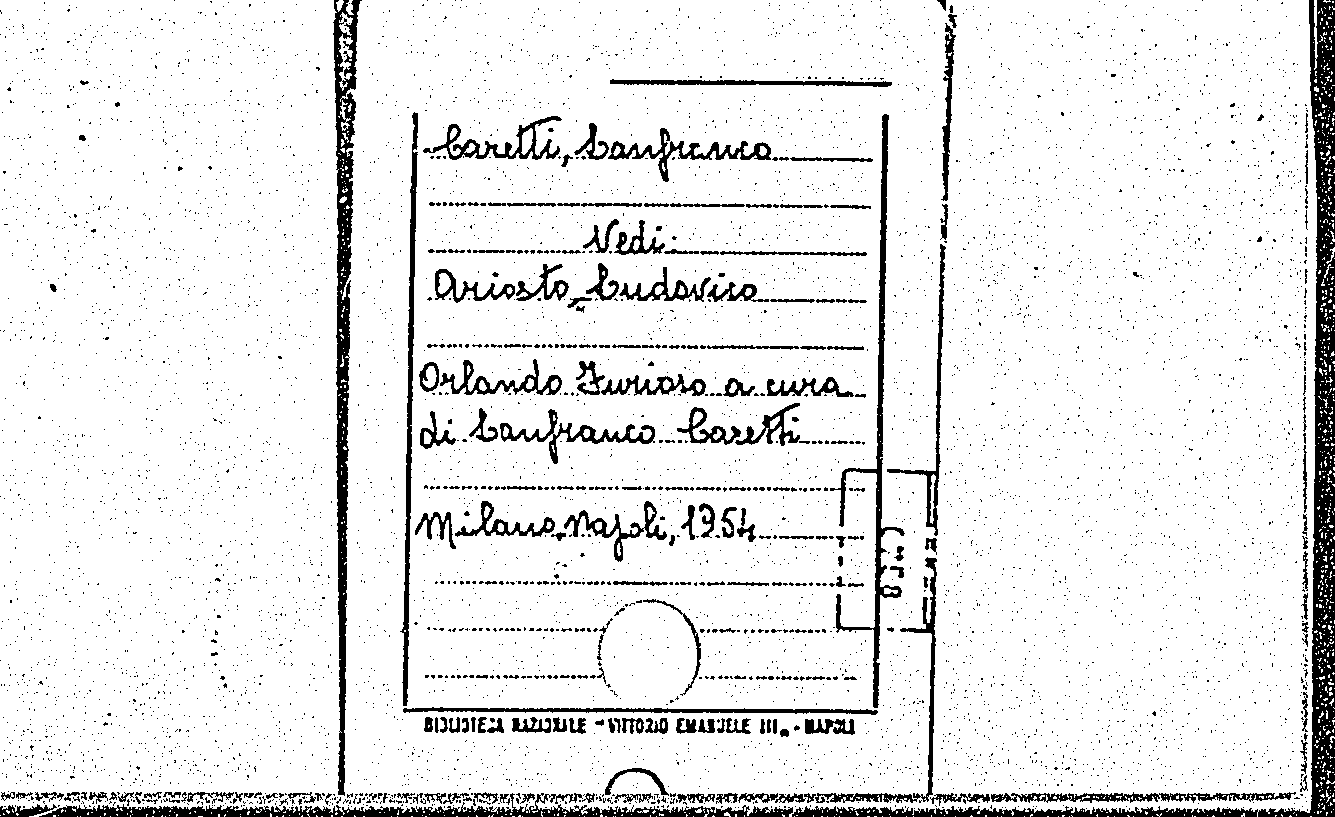 Caretti, Lanfranco
Vedi:
Ariosto, Ludovico
Orlando Furioso a cura
di Lanfranco Caretti
Milano, Napoli, 1954
BIBLIOTECA NAZIONALE - VITTORIO EMANUELE III. - NAPOLI